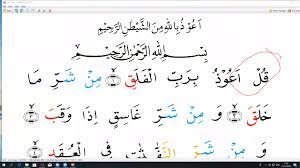 اَعُوْذُ بِاللّٰهِ مِنَ الشَّيْطٰنِ الرَّجِيْمِ
بِسْمِ اللّٰهِ الرَّحْمٰنِ الرَّحِيْمِ
قُلْ اَعُوْذُ بِرَبِّ الْفَلَقِ ۝ مِنْ شَرِّ مَا
خَلَقَ ۝ وَ مِنْ شَرِّ غَاسِقٍ اِذَا وَقَبَ ۝
وَ مِنْ شَرِّ النَّفّٰثٰتِ فِي الْعُقَدِ